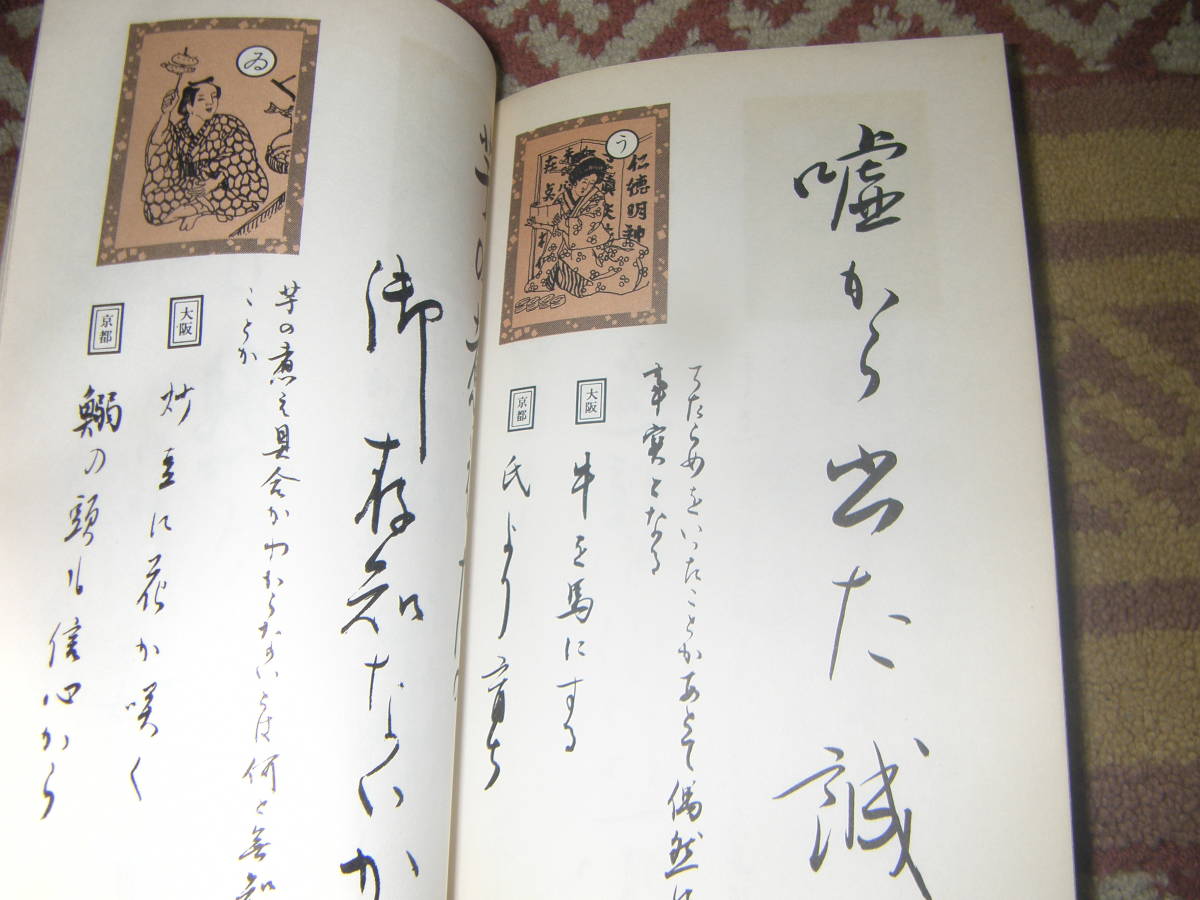 嘘から出た誠
う
仁徳明神
てたらめをいったことかあとて偶然に
事実となる
大阪
牛を馬にする
京都
氏より育ち
御存知ないか
ゐ
芋の煮え具合かわからないとは何と無知
ことか
大阪
炒豆に花か咲く
京都
鰯の頭も信心から